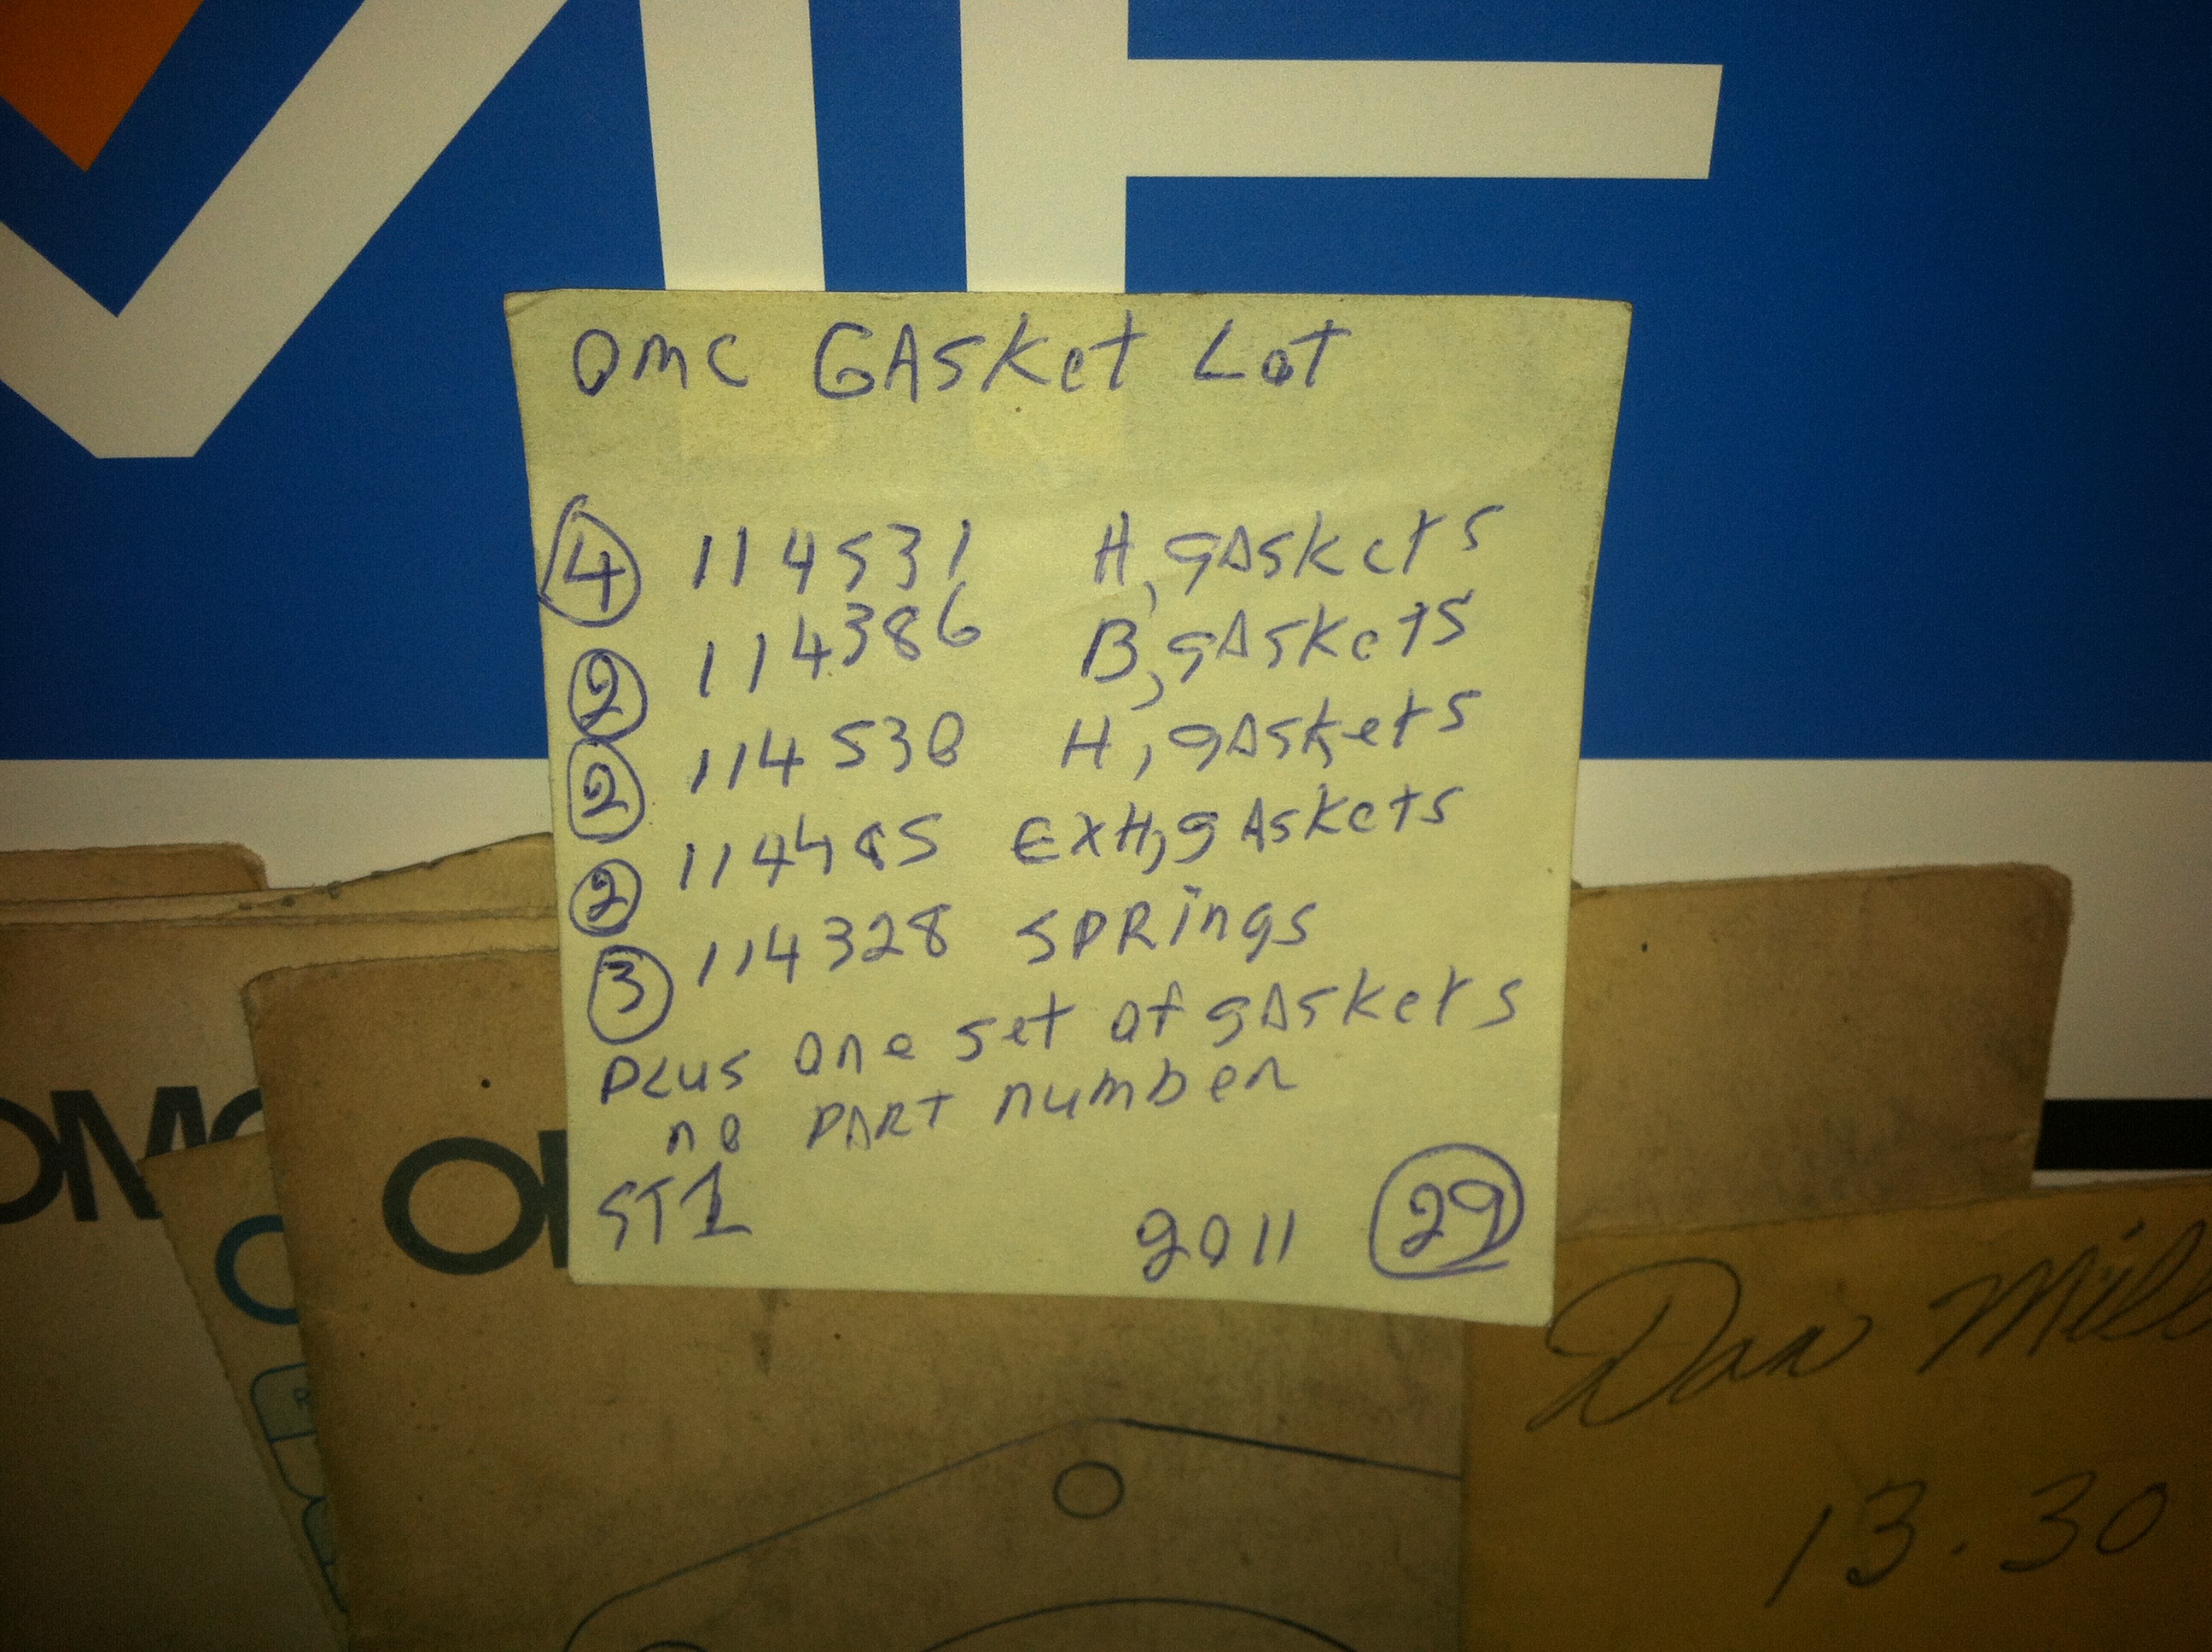 OMC GASKet Lot
4 114531 H, gASKets
2 114386 B, gASKets
2 114530 H, gASKets
2 114485 EXH, g ASKets
3 114328 SPRings
PLUS One set of gASKets
no PART number
ST1 2011 29
OMC
Dan
13.30